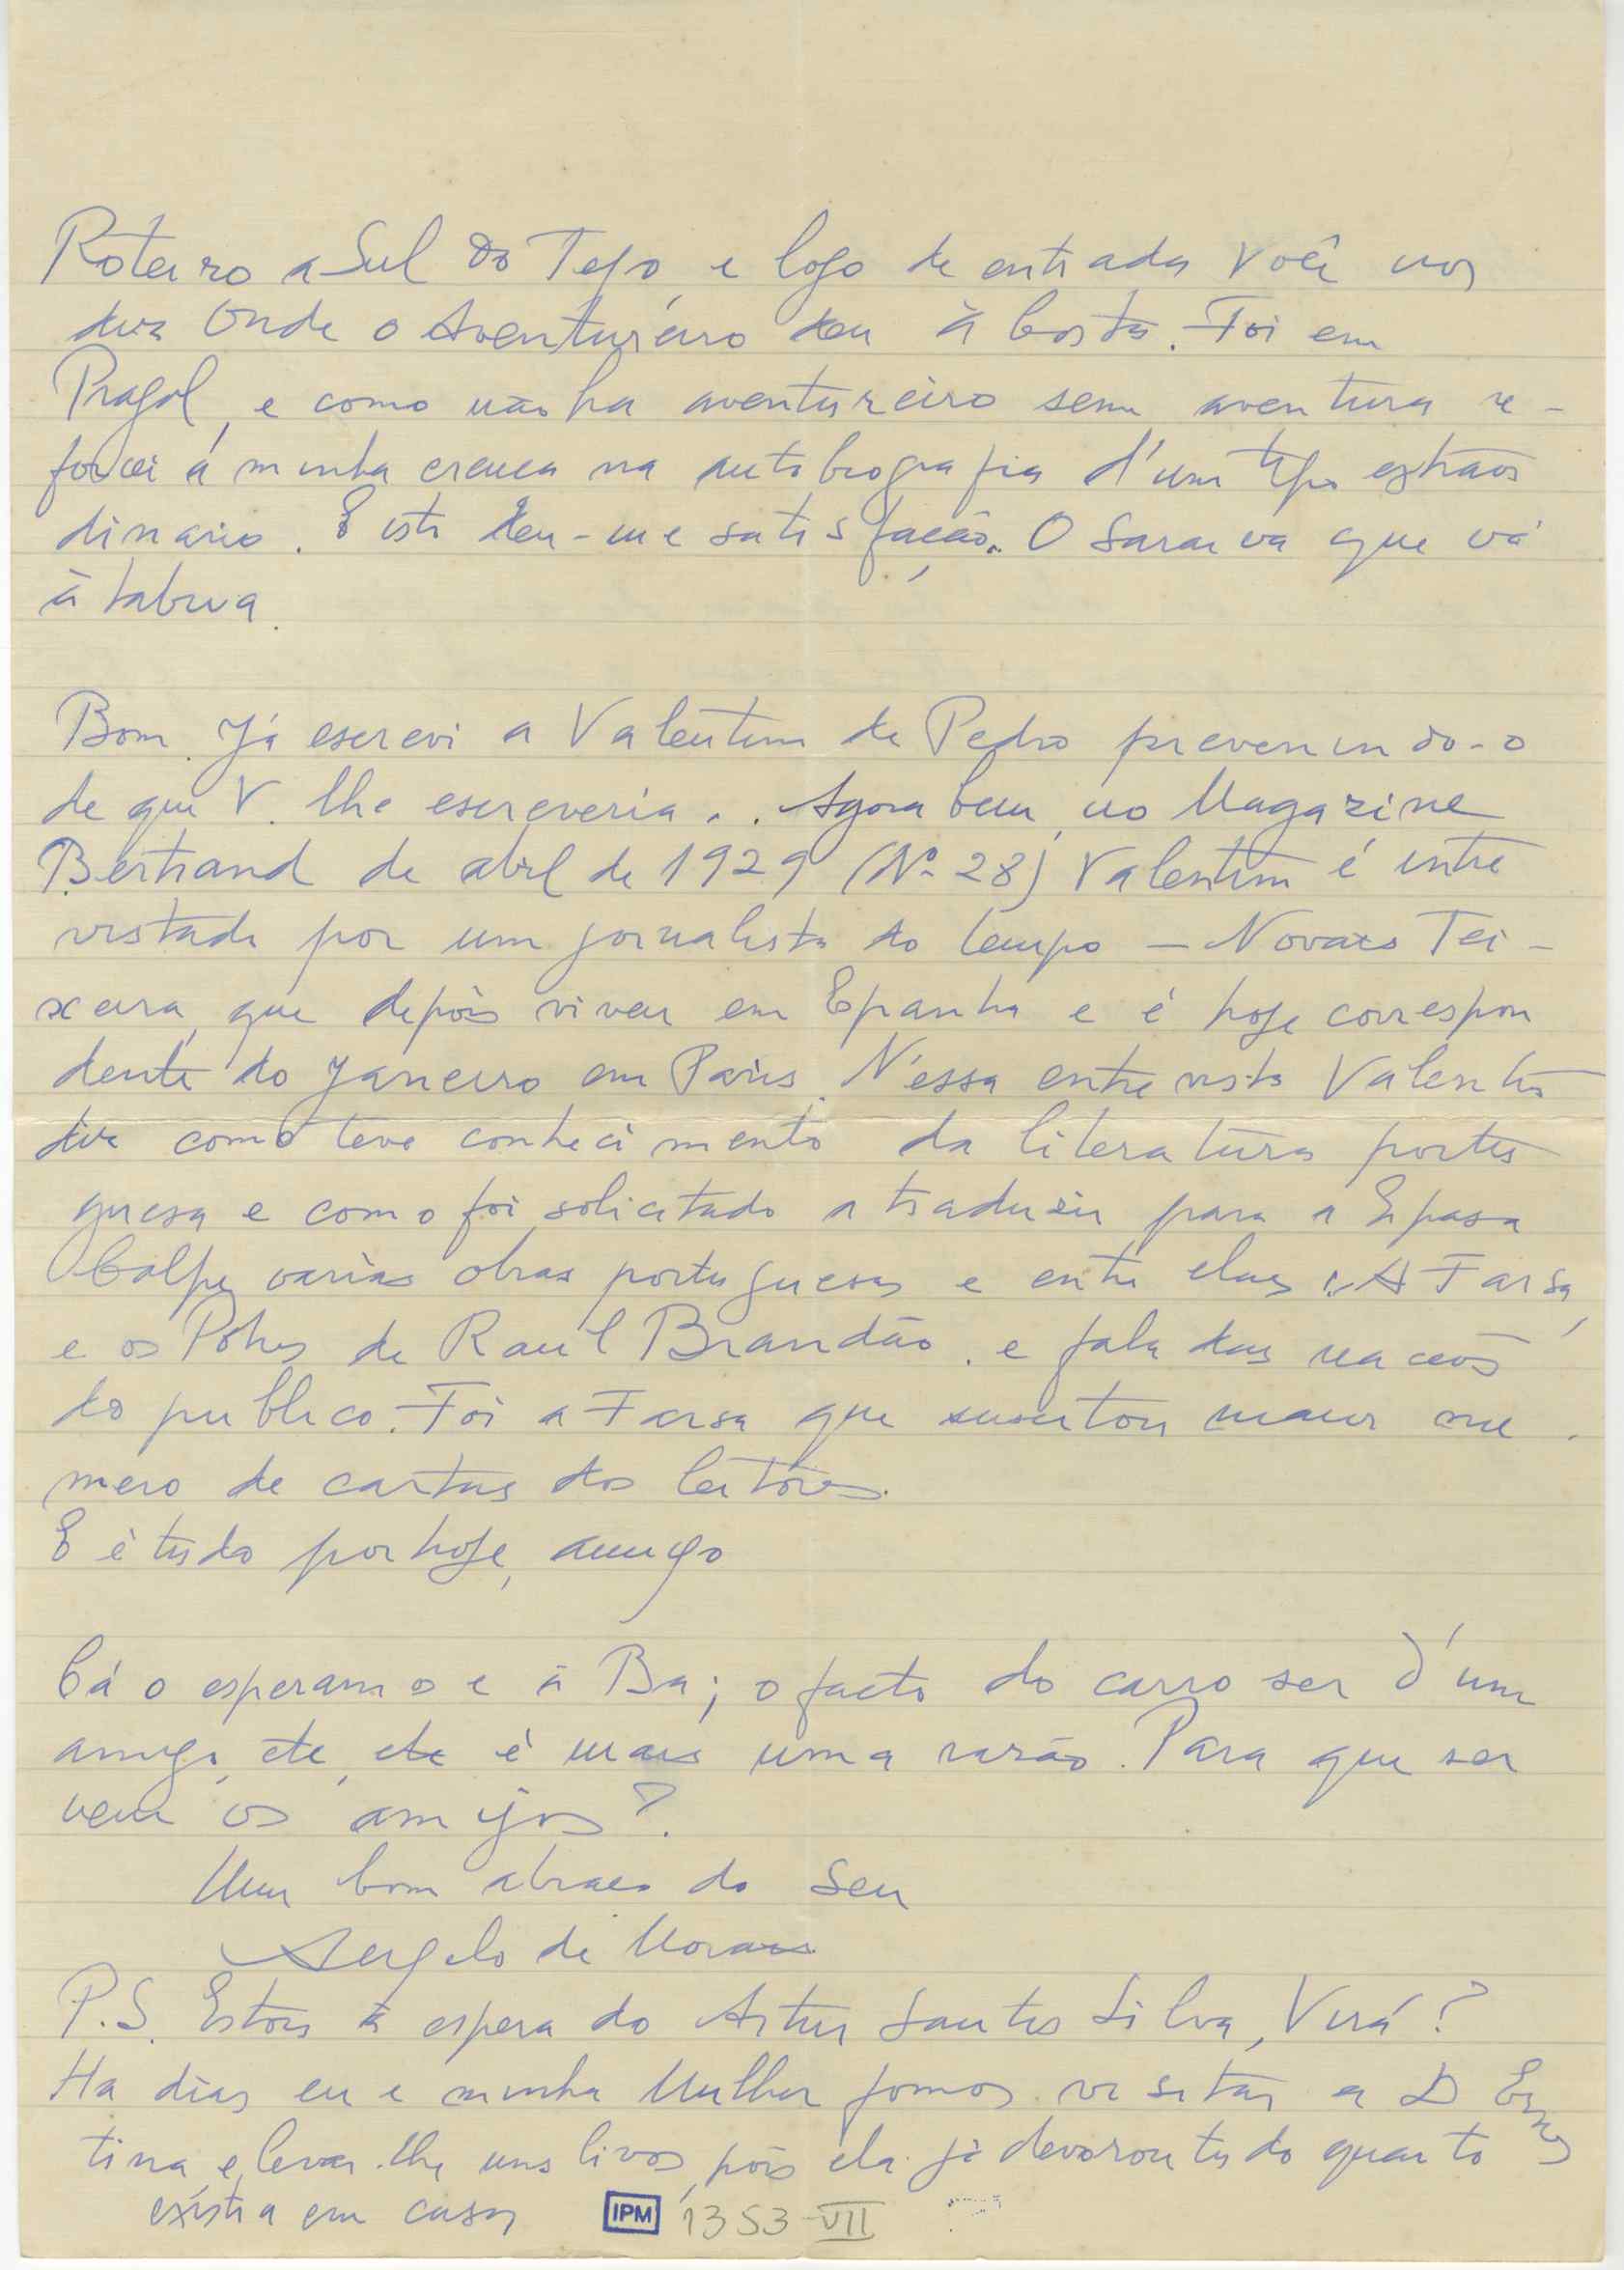 Roteiro a Sul do Tejo, e logo de entrada Você nos
diz Onde o Aventureiro deu à Costa. Foi em
Pragal, e como não ha aventureiro sem aventura re-
forcei á minha crença na autobiografia d'um tipo extraor
dinario. E isto deu-me satisfação. O Saraiva que vá
à tabua.
Bom. Já escrevi a Valentim de Pedro prevenindo-o
de que V. lhe escreveria.. Agora bem, no Magazine
Bertrand de abril de 1929 (Nº 28) Valentim é entre
vistado por um jornalista do tempo — Novaes Tei-
xeira, que depois viveu em Espanha e é hoje correspon
dente do Janeiro em Paris. N'essa entrevista Valentim
diz como teve conhecimento da literatura portu
guesa e como foi solicitado a traduzir para a Espasa
Calpe varias obras portuguesas e entre elas: A Farsa,
e os Pobres de Raul Brandão. e fala das reações
do publico. Foi a Farsa que suscitou maior nu
mero de cartas dos leitores.
E é tudo por hoje, amigo
Cá o esperamos e à Ba; o facto do carro ser d'um
amigo, etc, etc é mais uma razão. Para que ser
vem os amigos?
Um bom abraço do Seu
Angelo de Moraes
P.S. Estou à espera do Artur Santos Silva, Virá?
Ha dias eu e minha Mulher fomos visitar a D Ernes
tina, e levar-lhe uns livros, pois ela já devorou tudo quanto
existia em casa
IPM 1353-VII